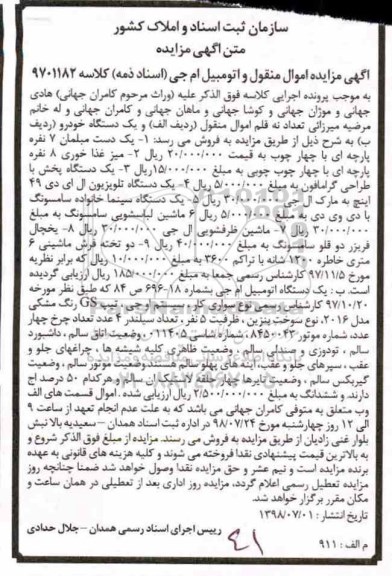 سازمان ثبت اسناد و املاک کشور
متن اگهی مزایده
اگهی مزایده اموال منقول و اتومبیل ام جی (اسناد ذمه) کلاسه ۹۷۰۱۱۸۲
به موجب پرونده اجرایی کلاسه فوق الذکر علیه (وراث مرحوم کامران جهانی) هادی
جهانی و موژان جهانی و کوشا جهانی و ماهان جهانی و کامران جهانی و له خانم
مرضیه میرزائی تعداد نه قلم اموال منقول (ردیف الف) و یک دستگاه خودرو (ردیف
ب) به شرح ذیل از طریق مزایده به فروش می رسد: ۱- یک دست مبلمان ۷ نفره
پارچه ای با چهار چوب به قیمت ۲۰/۰۰۰/۰۰۰ ریال ۲- میز غذا خوری ۸ نفره
پارچه ای با چهار چوب چوبی به مبلغ ۱۵/۰۰۰/۰۰۰ریال ۳- یک دستگاه پخش با
طراحی گرامافون به مبلغ ۵/۰۰۰/۰۰۰ ریال ۴- یک دستگاه تلویزیون ال ای دی ۴۹
اینچ به مارک ال جی به مبلغ ۳۰/۰۰۰/۰۰۰ ریال ۵- یک دستگاه سینما خانواده سامسونگ
با دی وی دی به مبلغ ۵/۰۰۰/۰۰۰ ریال ۶ ماشین لباسشویی سامسونگ به مبلغ
۳۰/۰۰۰/۰۰۰ ریال ۷- ماشین ظرفشویی ال جی ۳۰/۰۰۰/۰۰۰ ریال ۸- یخچال
فریزر دو قلو سامسونگ به مبلغ ۴۰/۰۰۰/۰۰۰ ریال ۹- دو تخته فرش ماشینی ۶
متری خاطره ۱۲۰۰ شانه با تراکم ۳۶۰۰ به مبلغ ۱۰/۰۰۰/۰۰۰ ریال که برابر نظریه
مورخ ۹۷/۱۱/۵ کارشناس رسمی جمعا به مبلغ ۱۸۵/۰۰۰/۰۰۰ ریال ارزیابی گردیده
است. ب: یک دستگاه اتومبیل ام جی بشماره ۱۸-۶۹۶ ص ۸۴ که طبق نظر مورخه
۹۷/۱۰/۲۰ کارشناس رسمی نوع سواری کار، سیستم ام جی، تیپ GS رنگ مشکی
مدل ۲۰۱۶، نوع سوخت بنزین، ظرفیت ۵ نفر، تعداد سیلندر ۴ عدد تعداد چرخ چهار
عدد، شماره موتور ۸۴۵۰۰۴۳، شماره شاسی ۰۱۱۴۰۵، وضعیت اتاق سالم، داشبورد
سالم، تودوزی و صندلی سالم، وضعیت ظاهری کلیه شیشه ها، چراغهای جلو و
عقب، سپرهای جلو و عقب، آینه های پهلو سالم هستند وضعیت موتور سالم، وضعیت
گیربکس سالم، وضعیت تایرها چهار حلقه لاستیکان سالم و هرکدام ۵۰ درصد اج
دارند، و ششدانگ به مبلغ ۲/۵۰۰/۰۰۰/۰۰۰ ریال ارزیابی شده. اموال قسمت های الف
وب متعلق به متوفی کامران جهانی می باشد که به علت عدم انجام تعهد از ساعت ۹
الی ۱۲ روز چهارشنبه مورخ ۹۸/۰۷/۲۴ در اداره ثبت اسناد همدان - سعیدیه بالا نبش
بلوار غنی زادیان از طریق مزایده به فروش می رسند. مزایده از مبلغ فوق الذکر شروع و
به بالاترین قیمت پیشنهادی نقدا فروخته می شوند و کلیه هزینه های قانونی به عهده
برنده مزایده است و نیم عشر و حق مزایده نقدا وصول خواهد شد ضمنا چنانچه روز
مزایده تعطیل رسمی اعلام گردد، مزایده روز اداری بعد از تعطیلی در همان ساعت و
مکان مقرر برگزار خواهد شد.
تاریخ انتشار: ۱۳۹۸/۰۷/۰۱
رییس اجرای اسناد رسمی همدان - جلال حدادی
م الف: ۹۱۱
۴۱